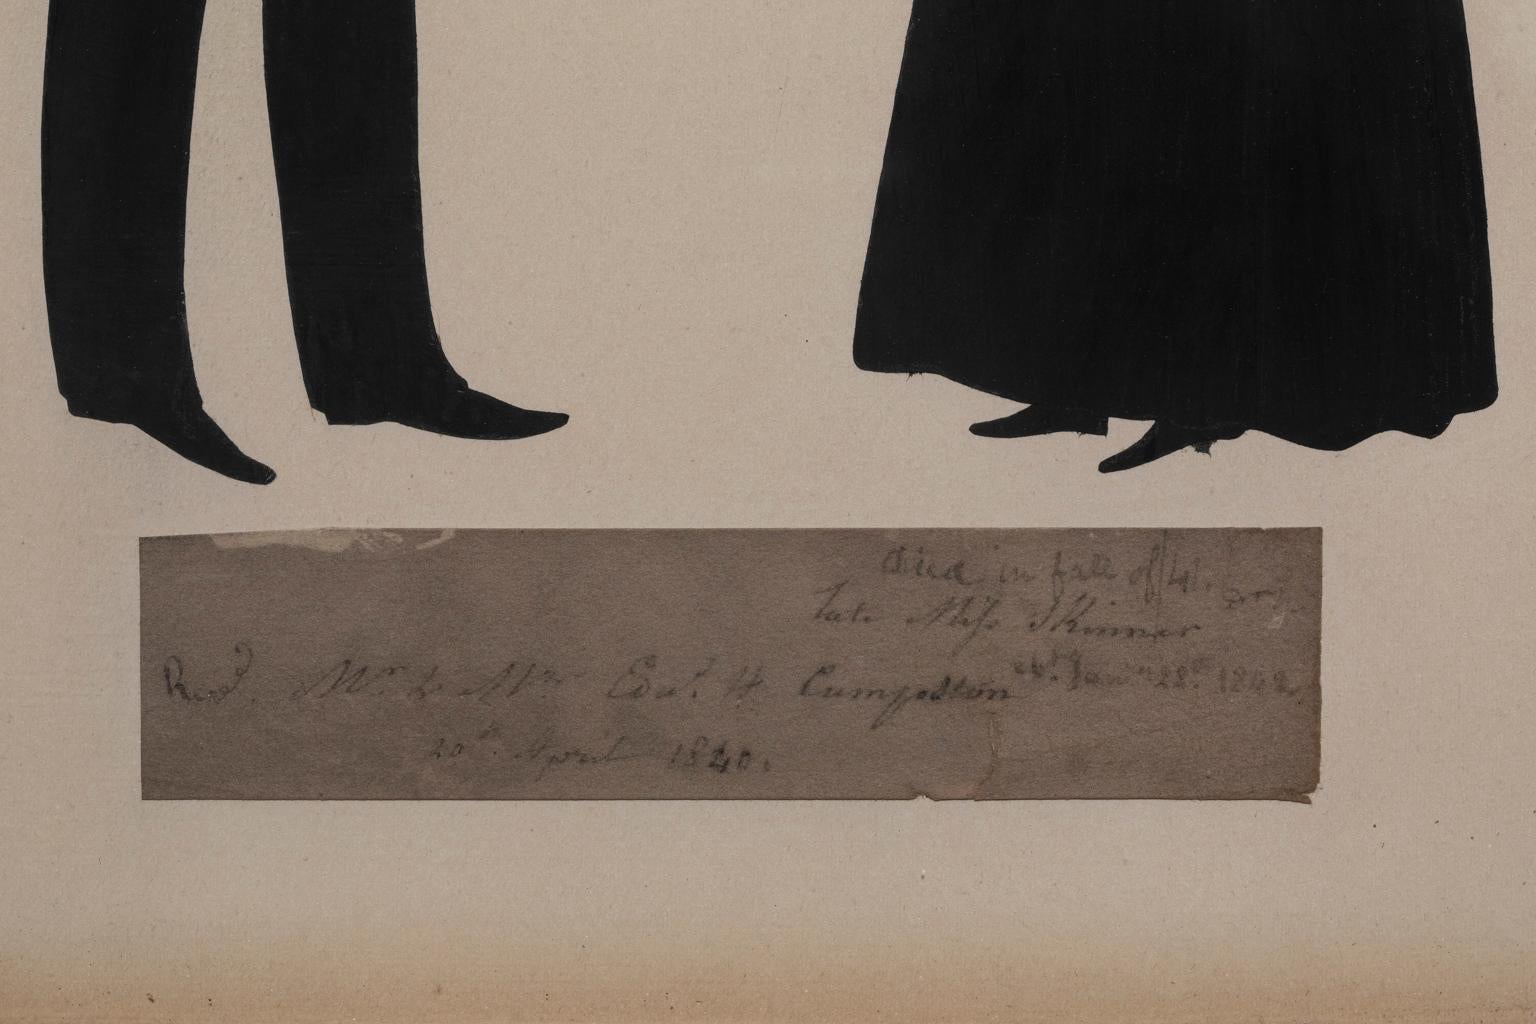 died in fall of 41.
late Miss Skinner
Revd. Mr & Mrs Edwd. H Cumpston Jany 28th 1842
20th April 1840.